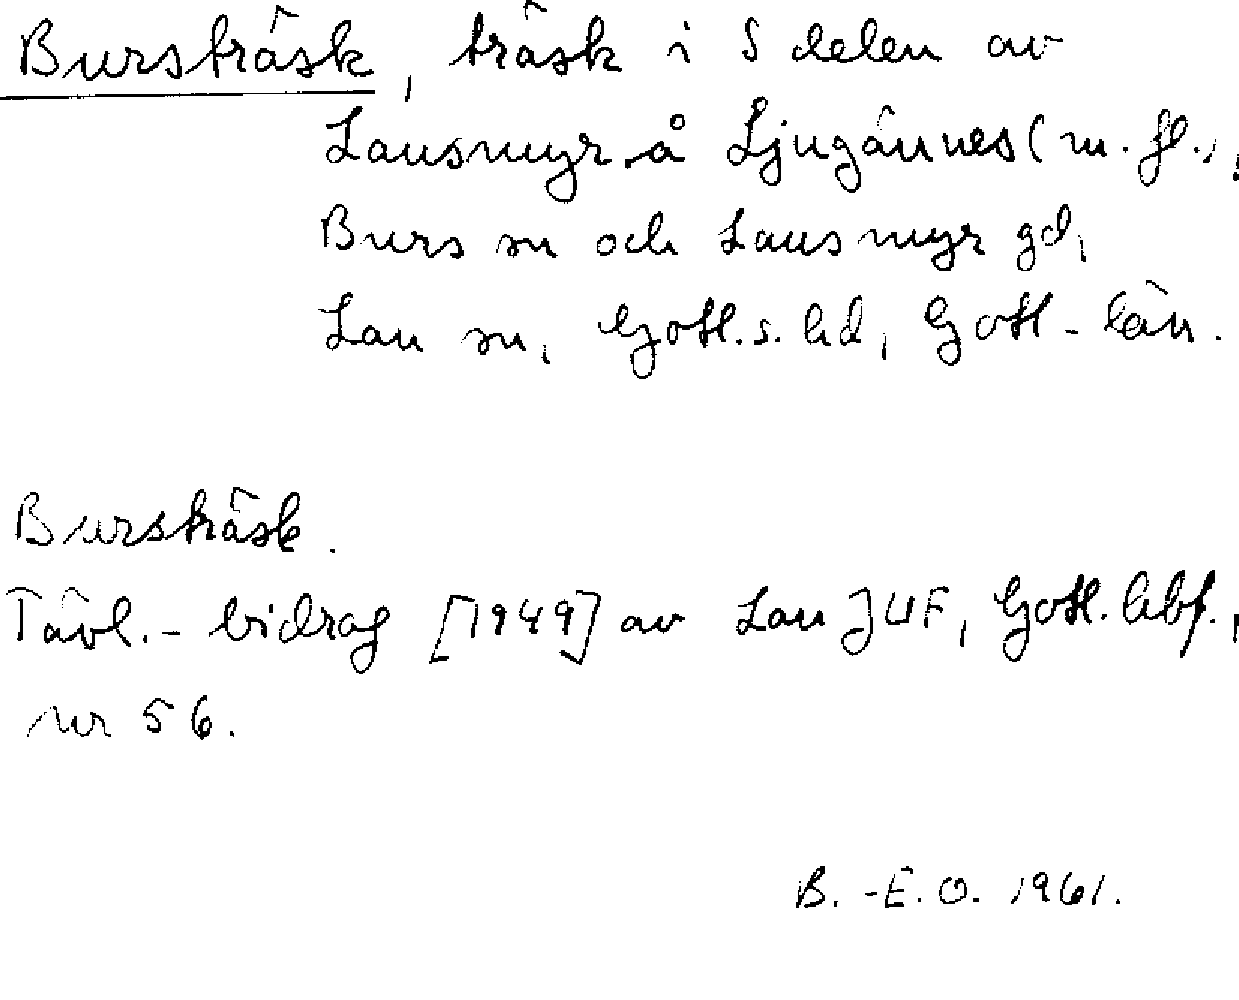 Bursträsk, träsk i S delen av
Lausmyr å Ljugännes (m. fl.),
Burs sn och Lausmyr gd,
Lau sn, Gotl. s. hd, Gotl- län.
Bursträsk.
Tävl.- bidrag [1949] av Lau JUF, Gotl. hbf.,
nr 56.
B. -E. O. 1961.